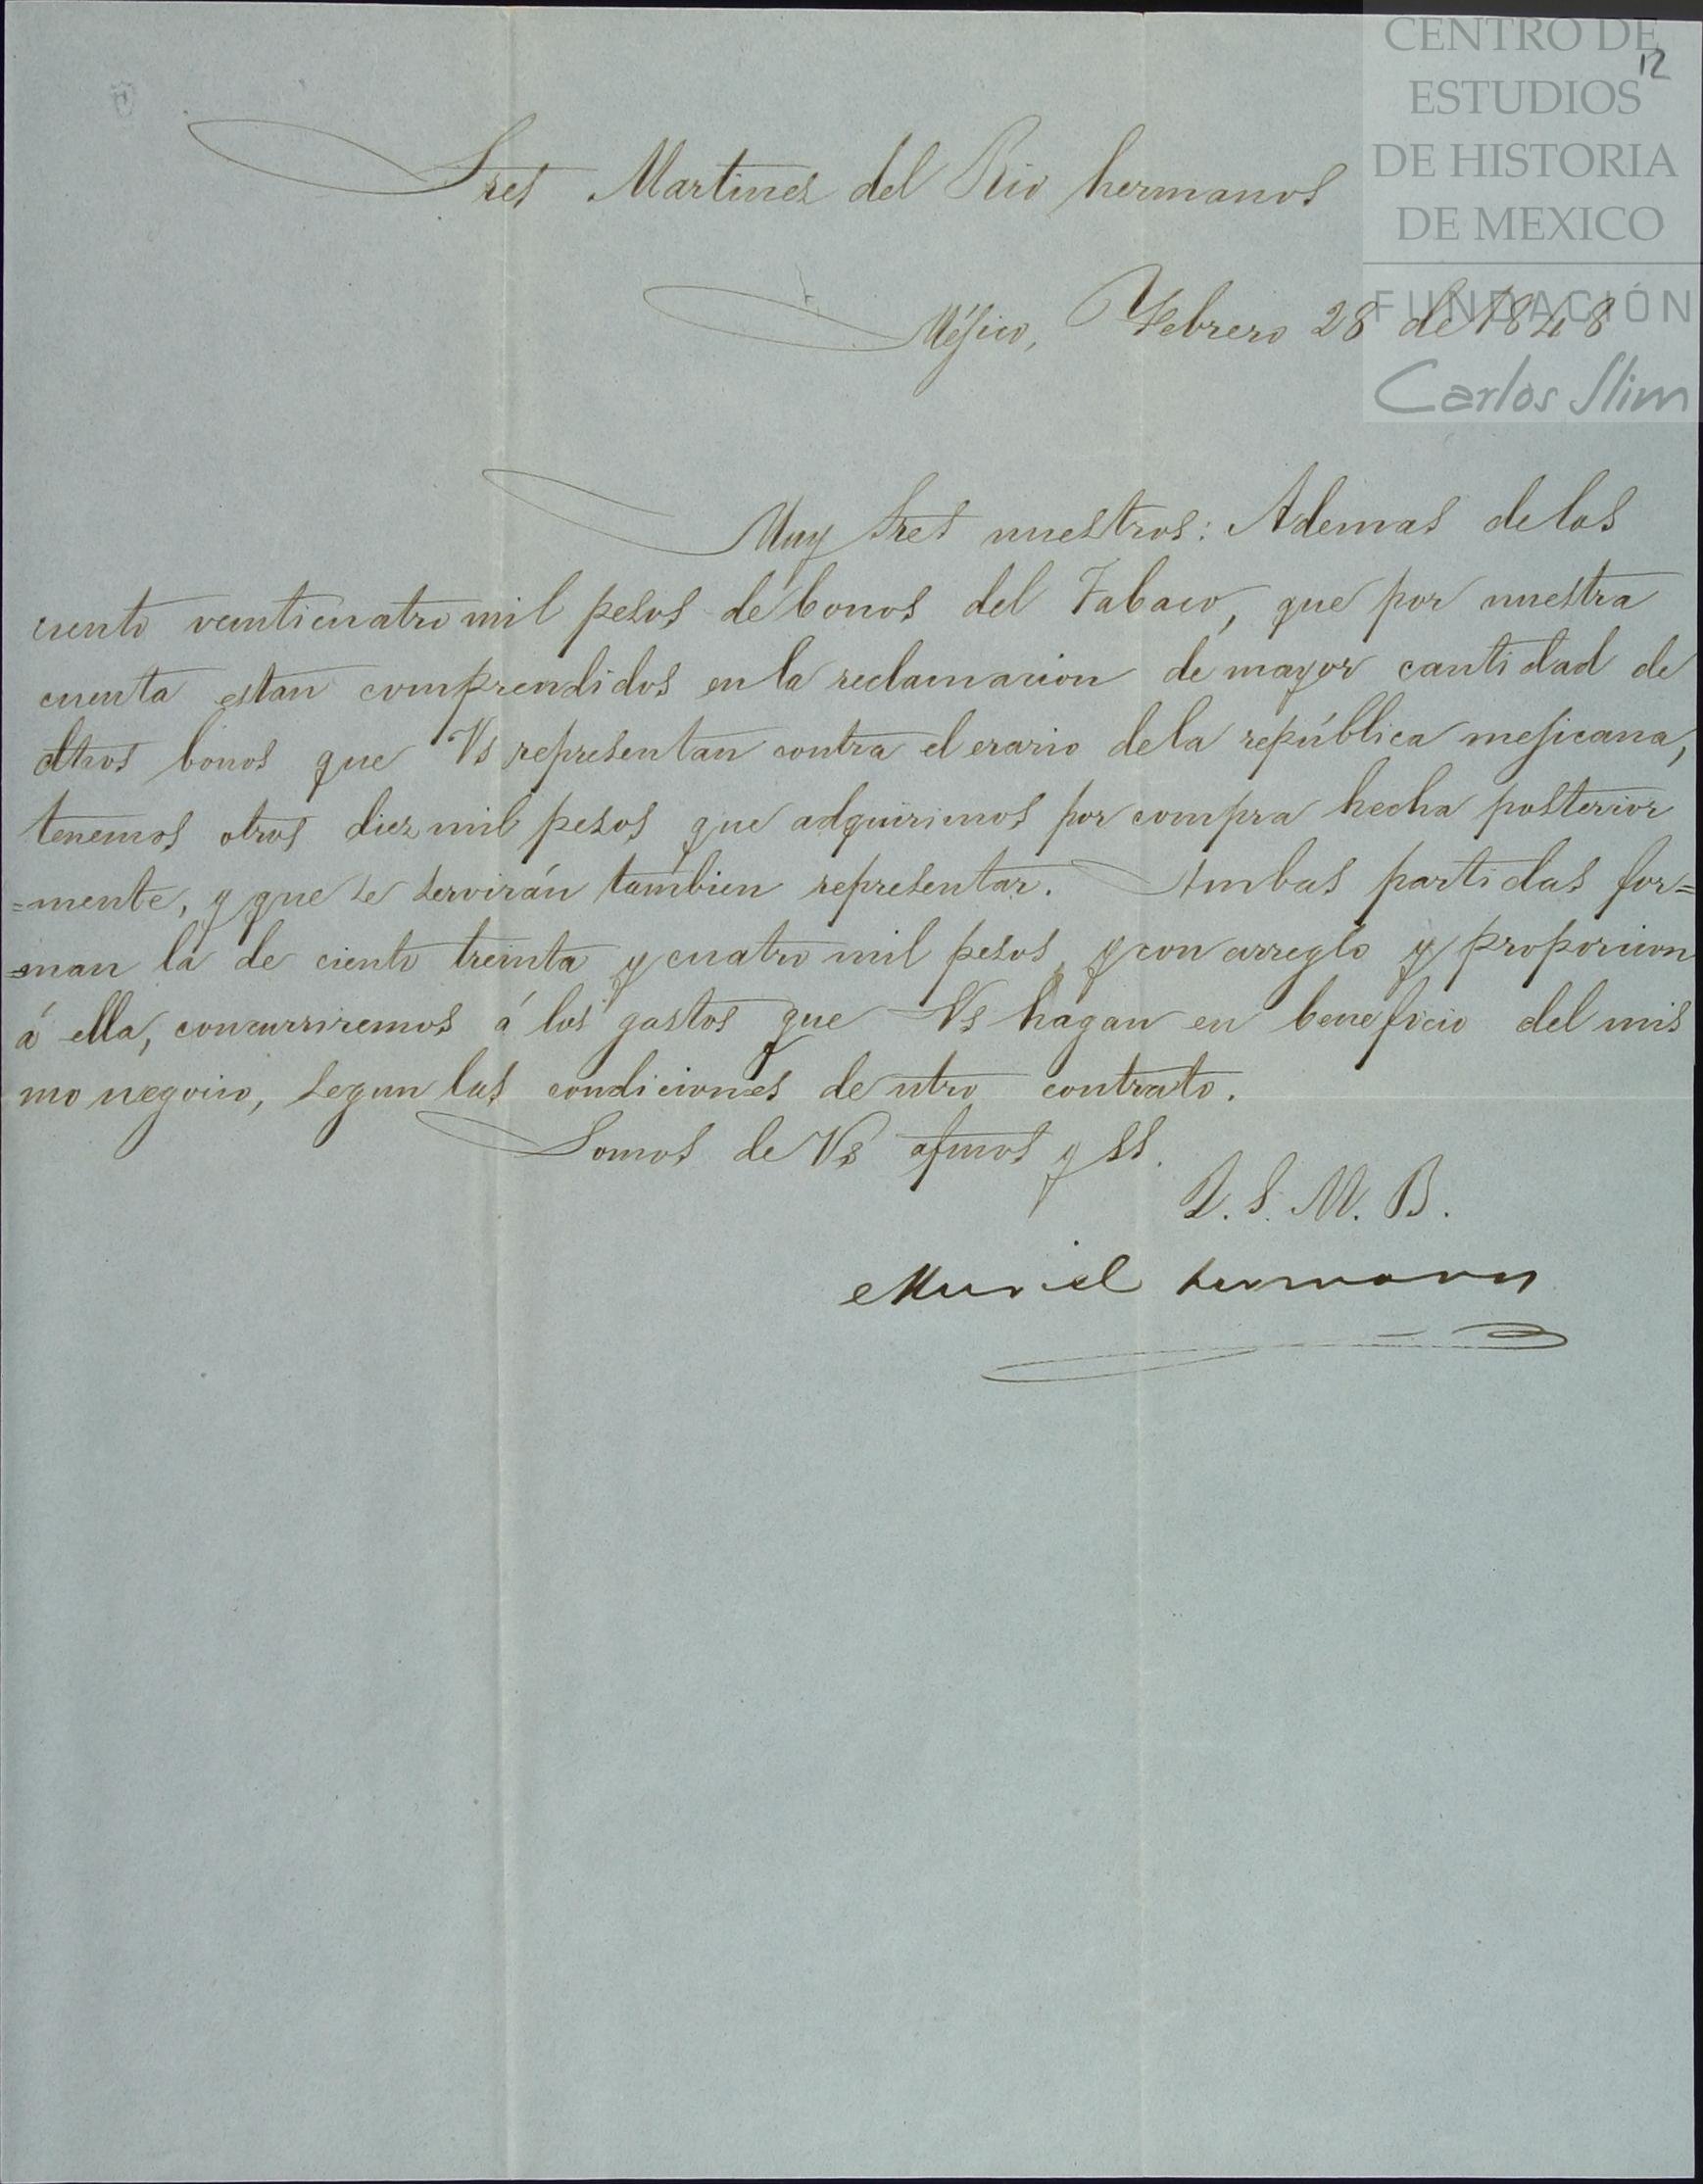 CENTRO DE
12
ESTUDIOS
DE HISTORIA
DE MEXICO
FUNDACIÓN
Carlos Slim
Sres Martinez del Rio hermanos
Méjico, Febrero 28 de 1848
Muy Sres nuestros: Ademas de los
ciento veinticuatro mil pesos de bonos del Tabaco, que por nuestra
cuenta estan comprendidos en la reclamacion de mayor cantidad de
otros bonos que Vs representan contra el erario de la república mejicana,
tenemos otros diez mil pesos que adquirimos por compra hecha posterior
=mente, y que se servirán tambien representar. Ambas partidas for=
=man la de ciento treinta y cuatro mil pesos, y con arreglo y proporcion
á ella, concurriremos á los gastos que Vs hagan en beneficio del mis
mo negocio, segun las condiciones de ntro contrato.
Somos de Vs afmos y SS.
Q. S. M. B.
Muriel hermanos